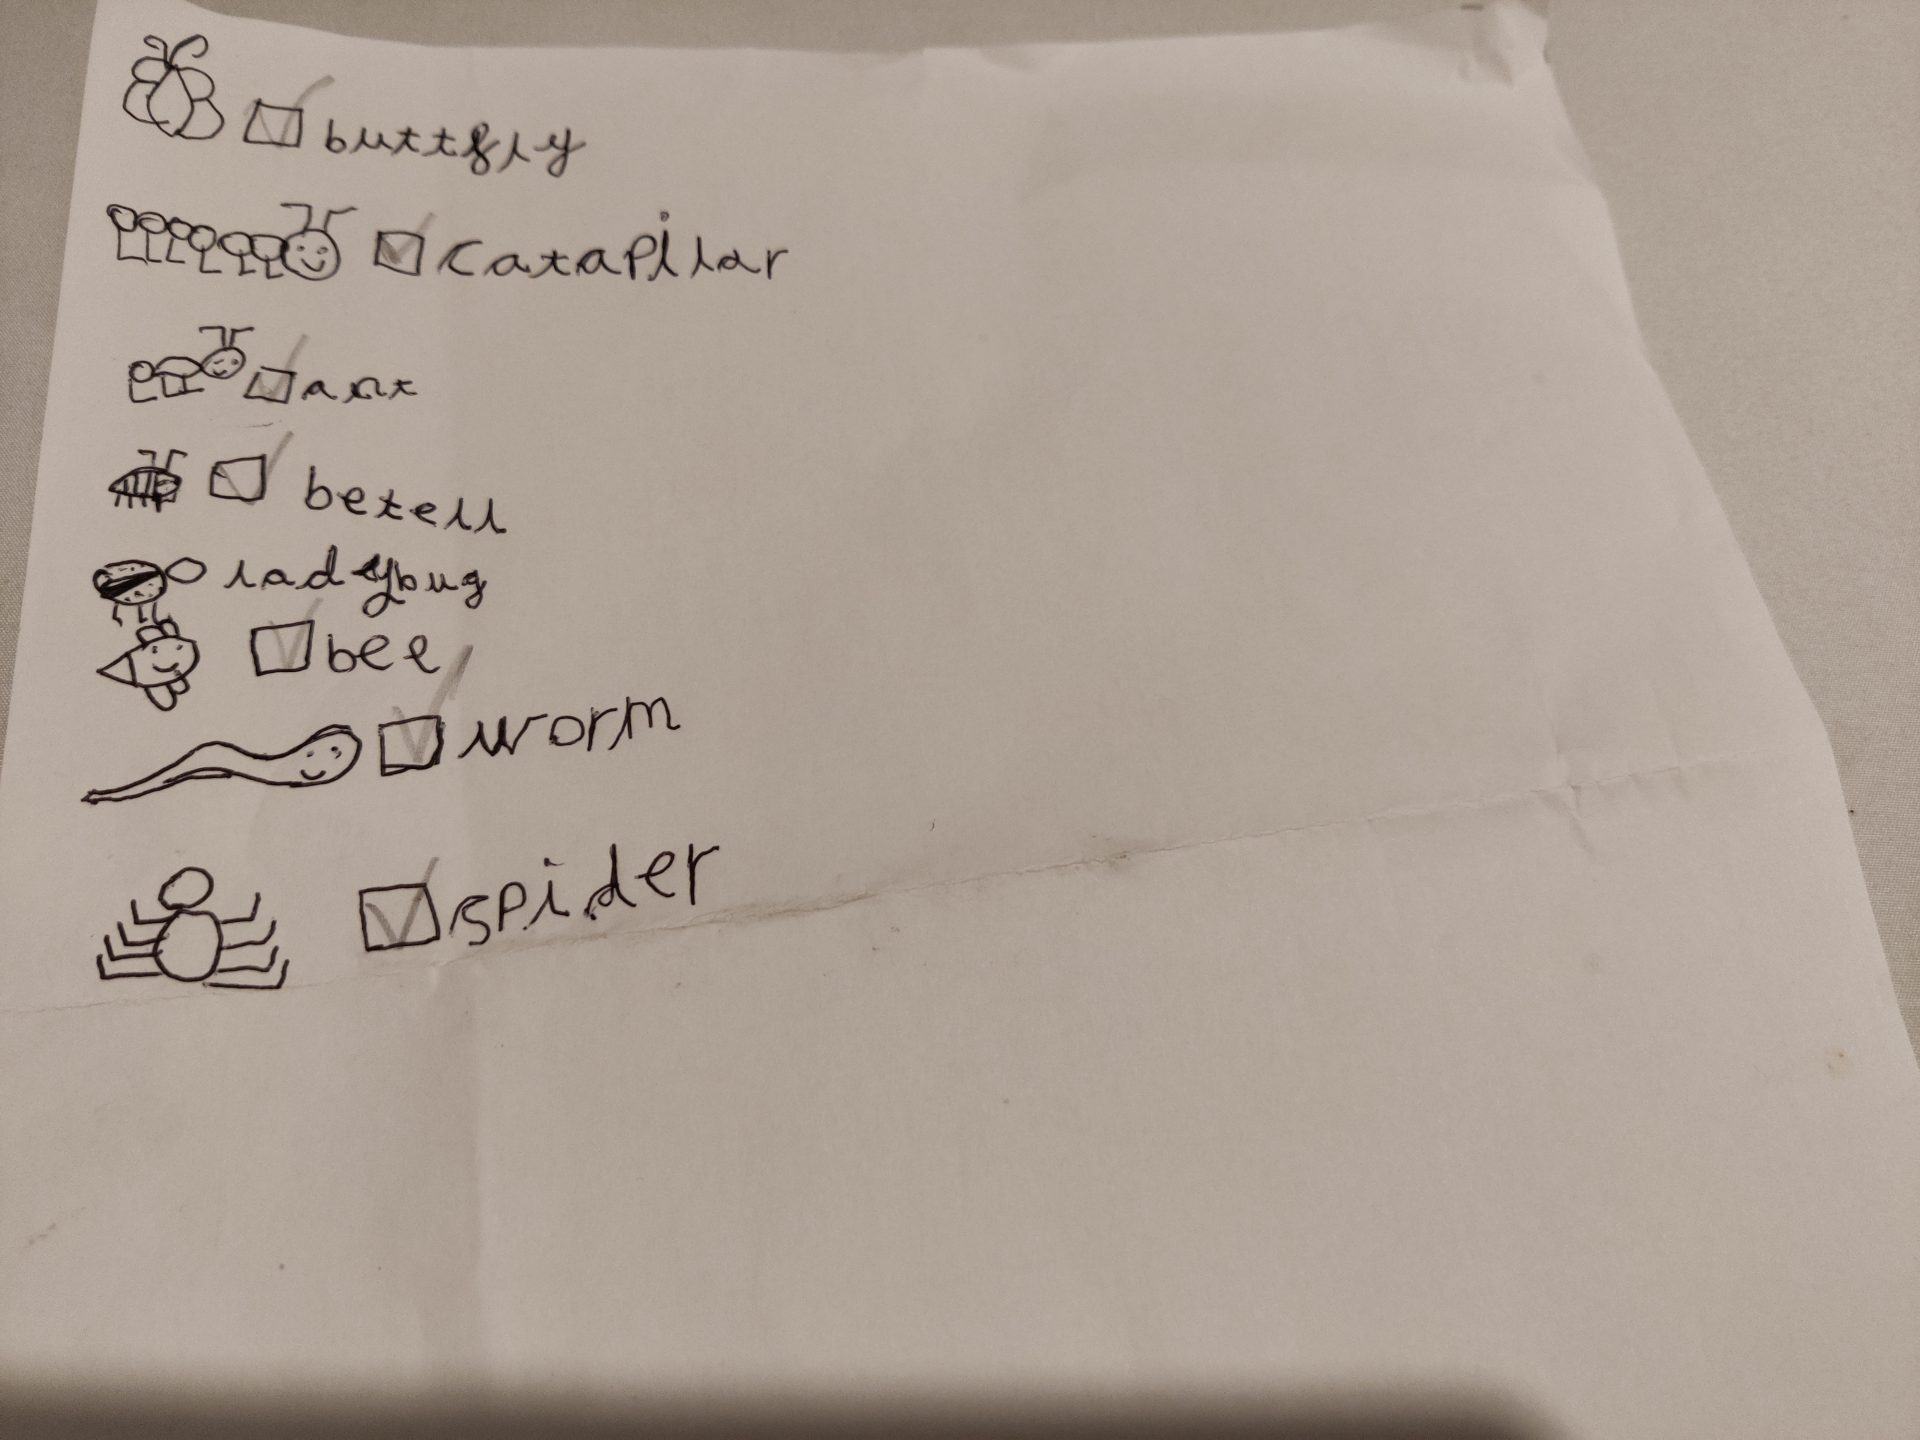 buttfly
catapilar
ant
betell
ladybug
bee
worm
spider